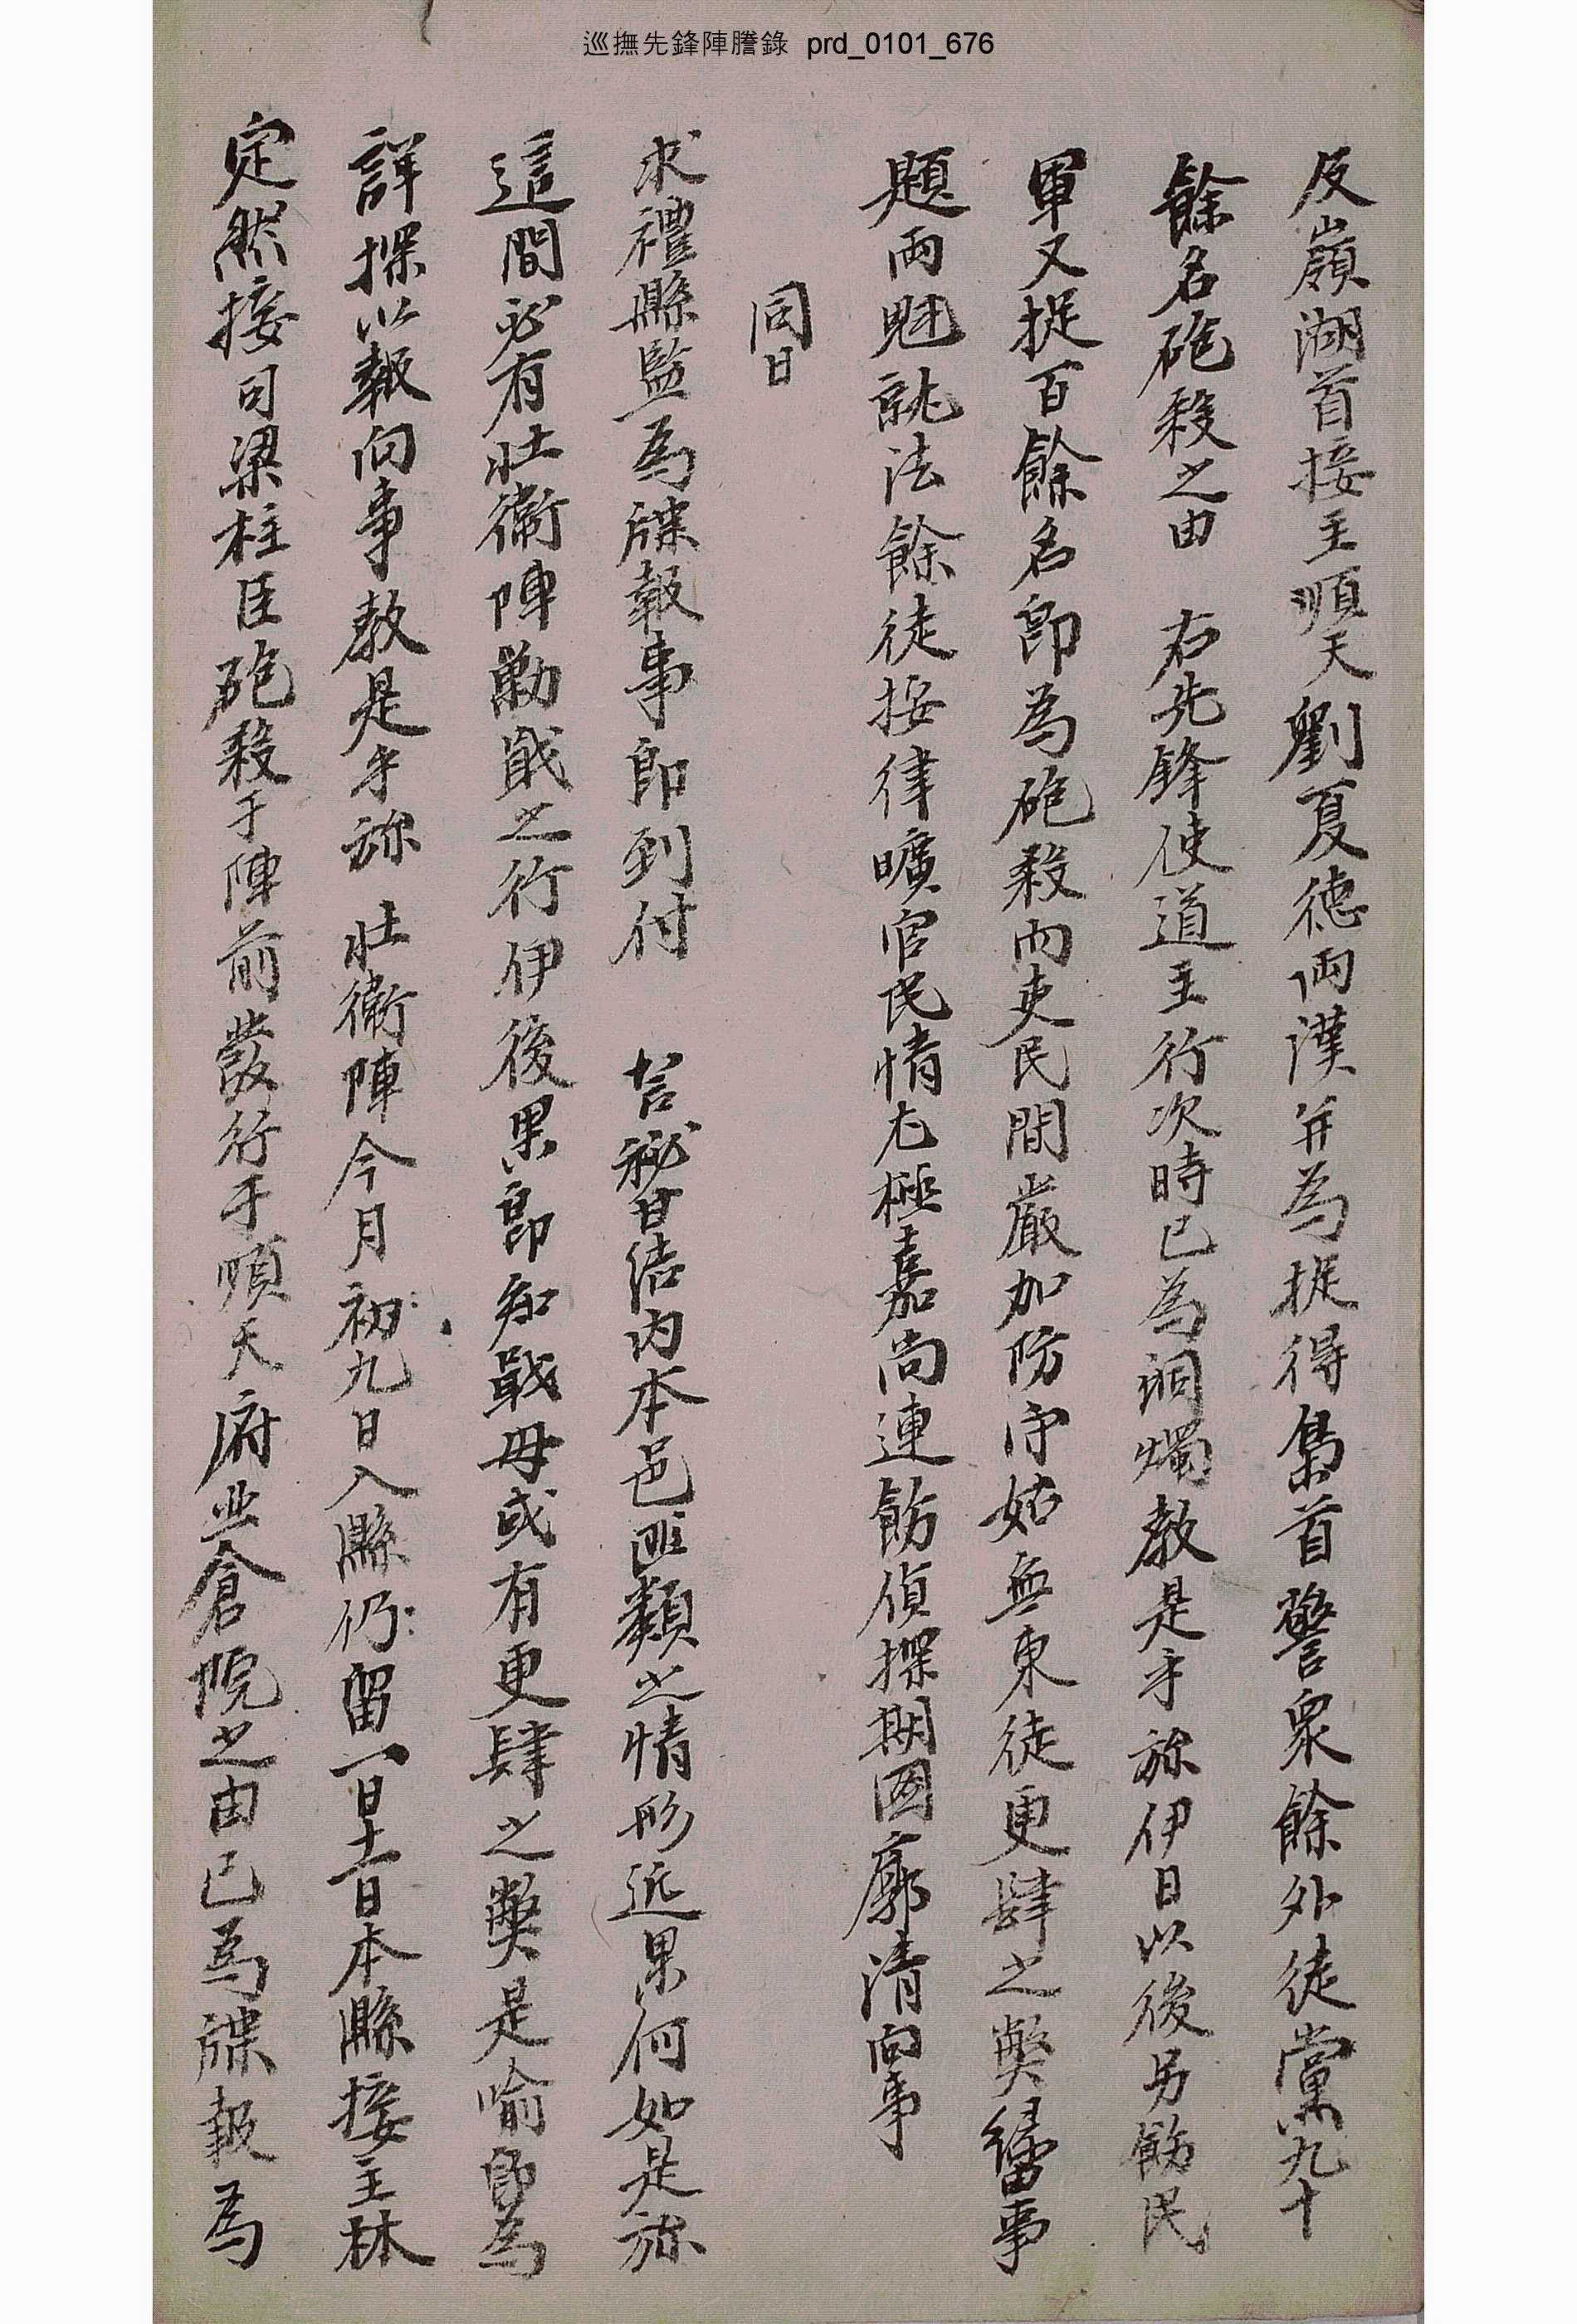 巡撫先鋒陣謄錄 prd_0101_676
及嶺湖首接主順天劉夏德兩漢并爲捉得梟首警衆餘外徒黨九十
餘名砲殺之由 右先鋒使道主行次時已爲洞燭敎是乎旀伊日以後另飭民
軍又捉百餘名卽爲砲殺而吏民間嚴加防守姑無東徒更肆之弊緣由事
題兩魁就法餘徒按律曠官民情尤極嘉尙連飭偵探期圖廓清向事
同日
求禮縣監爲牒報事卽到付 書秘甘結內本邑匪類之情形近果何如是旀
這間必有壯衛陣勦戢之行伊後果卽知戢毋或有更肆之弊是喩卽爲
詳探以報向事敎是乎旀 壯衛陣今月初九日入縣仍留一日十一日本縣接主林
定然接司梁柱臣砲殺于陣前發行于順天府興倉院之由已爲牒報爲